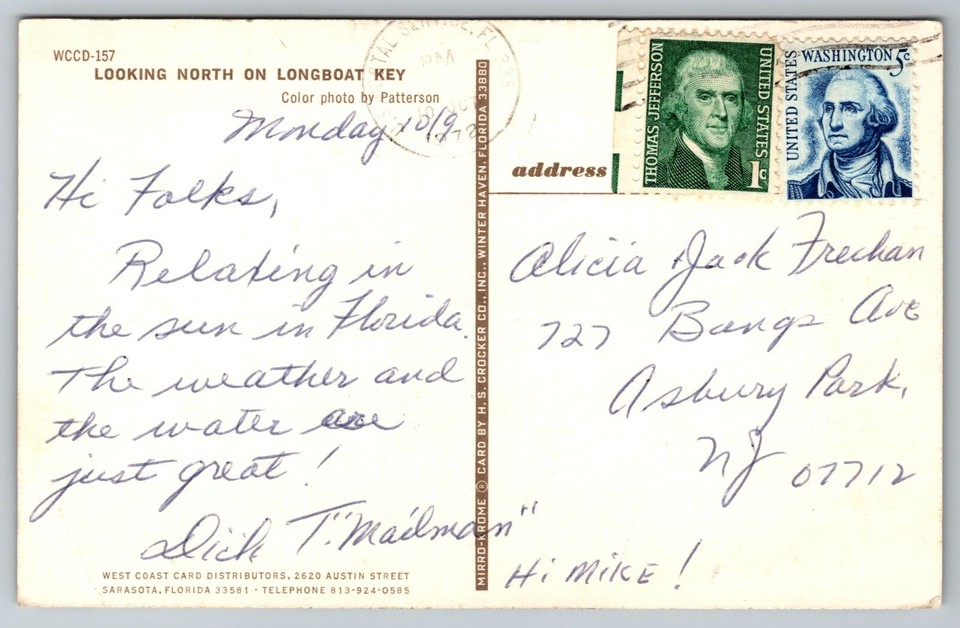 WCCD-157
LOOKING NORTH ON LONGBOAT KEY
Color photo by Patterson
Monday 10/9
Hi Folks,
Relaxing in
the sun in Florida.
The weather and
the water are
just great!
Dick T. "Mailman"
WEST COAST CARD DISTRIBUTORS, 2620 AUSTIN STREET
SARASOTA, FLORIDA 33581 · TELEPHONE 813-924-0585
MIRRO-KROME ® CARD BY H. S. CROCKER CO., INC., WINTER HAVEN, FLORIDA 33880
POSTAL SERVICE, FL
PM
1972
THOMAS JEFFERSON
UNITED STATES
1c
UNITED STATES
WASHINGTON 5c
address
Alicia Jack Frechan
727 Bangs Ave
Asbury Park,
NJ 07712
Hi Mike!